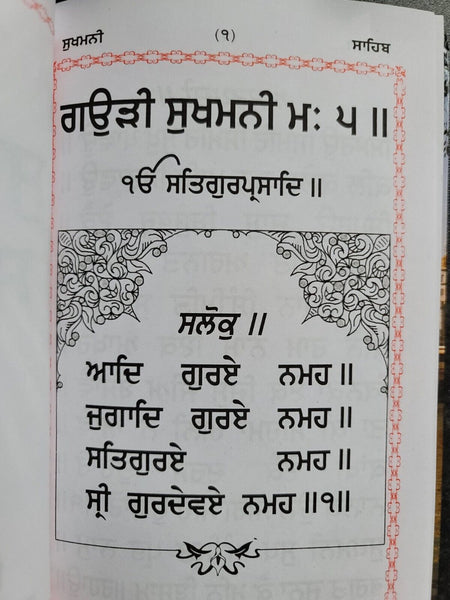 ਸੁਖਮਨੀ (੧) ਸਾਹਿਬ
ਗਉੜੀ ਸੁਖਮਨੀ ਮਃ ੫ ॥
ੴ ਸਤਿਗੁਰਪ੍ਰਸਾਦਿ ॥
ਸਲੋਕੁ ॥
ਆਦਿ ਗੁਰਏ ਨਮਹ ॥
ਜੁਗਾਦਿ ਗੁਰਏ ਨਮਹ ॥
ਸਤਿਗੁਰਏ ਨਮਹ ॥
ਸ੍ਰੀ ਗੁਰਦੇਵਏ ਨਮਹ ॥੧॥